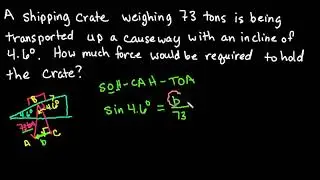 A shipping crate weighing 73 tons is being
transported up a causeway with an incline of
4.6°. How much force would be required to hold
the crate?
SOH-CAH-TOA
sin 4.6° = b
73
4.6°
4.6°
A
b
C